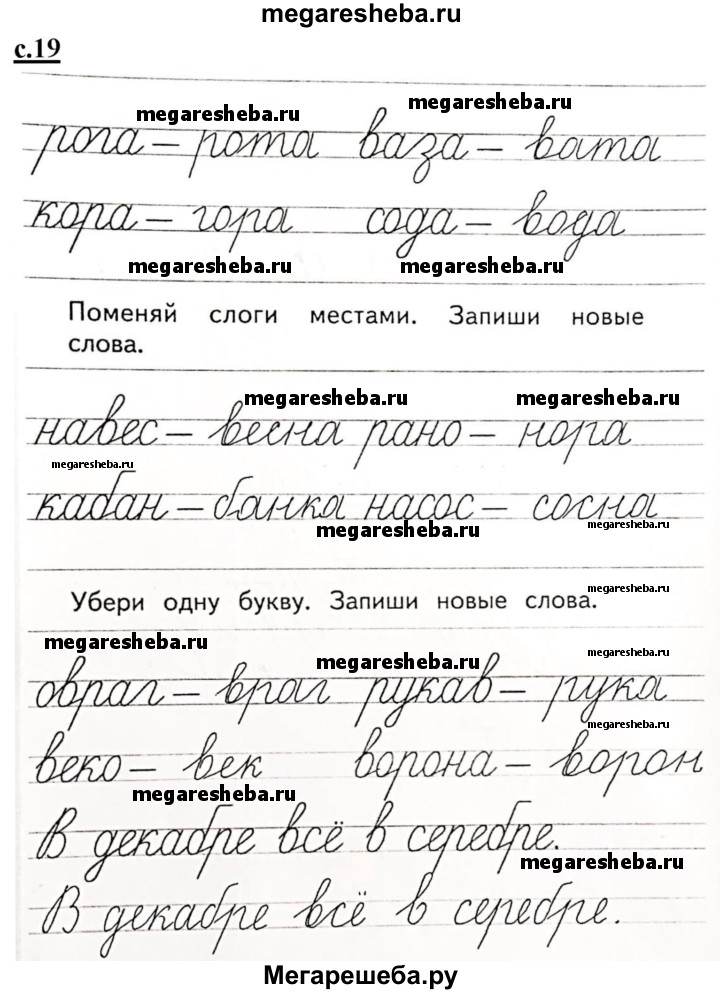 megaresheba.ru
с.19
megaresheba.ru megaresheba.ru
рога – рота ваза – вата
кора – гора сода – вода
megaresheba.ru megaresheba.ru
Поменяй слоги местами. Запиши новые
слова.
megaresheba.ru megaresheba.ru
навес – весна рано – нора
megaresheba.ru
кабан – банка насос – сосна
megaresheba.ru megaresheba.ru
megaresheba.ru
Убери одну букву. Запиши новые слова.
megaresheba.ru megaresheba.ru megaresheba.ru
овраг – враг рукав – рука
megaresheba.ru
веко – век ворона – ворон
megaresheba.ru
В декабре всё в серебре.
megaresheba.ru
В декабре всё в серебре.
Мегарешеба.ру